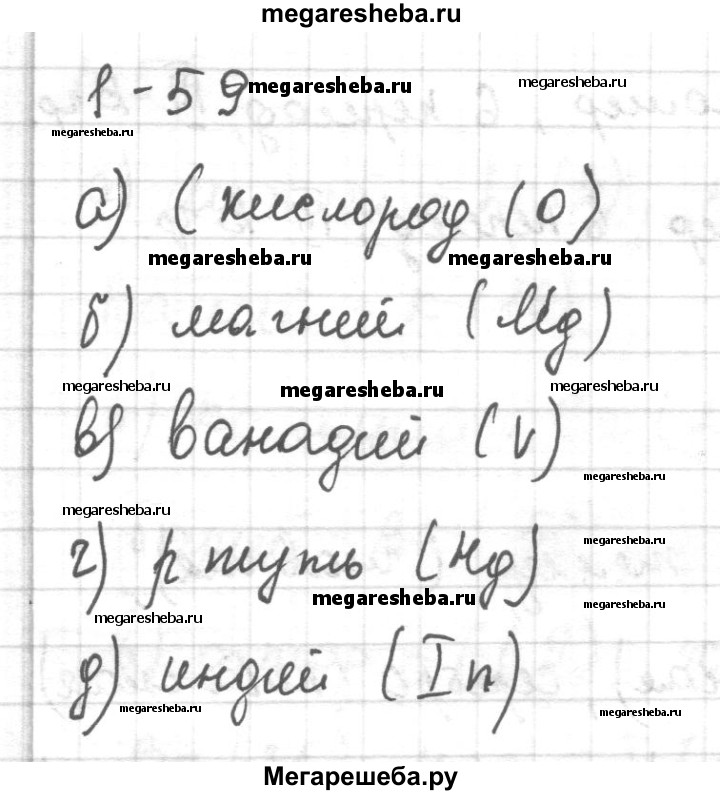 megaresheba.ru
1-59 megaresheba.ru megaresheba.ru
megaresheba.ru
а) (кислород (O)
megaresheba.ru megaresheba.ru
б) магний (Mg)
megaresheba.ru megaresheba.ru megaresheba.ru
в) ванадий (V)
megaresheba.ru
megaresheba.ru
г) ртуть (Hg)
megaresheba.ru
megaresheba.ru megaresheba.ru
megaresheba.ru
д) индий (In)
megaresheba.ru megaresheba.ru
Мегарешеба.ру